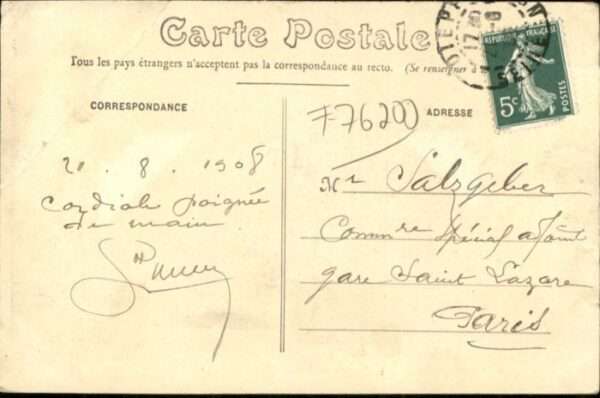 Carte Postale
Tous les pays étrangers n'acceptent pas la correspondance au recto. (Se renseigner
CORRESPONDANCE
21. 8. 1908
Cordiale poignée
de main
F76200
ADRESSE
Mr Salzgeber
Commre Spécial adjoint
gare Saint Lazare
Paris
REPUBLIQUE FRANÇAISE
5c
POSTES
SEINE